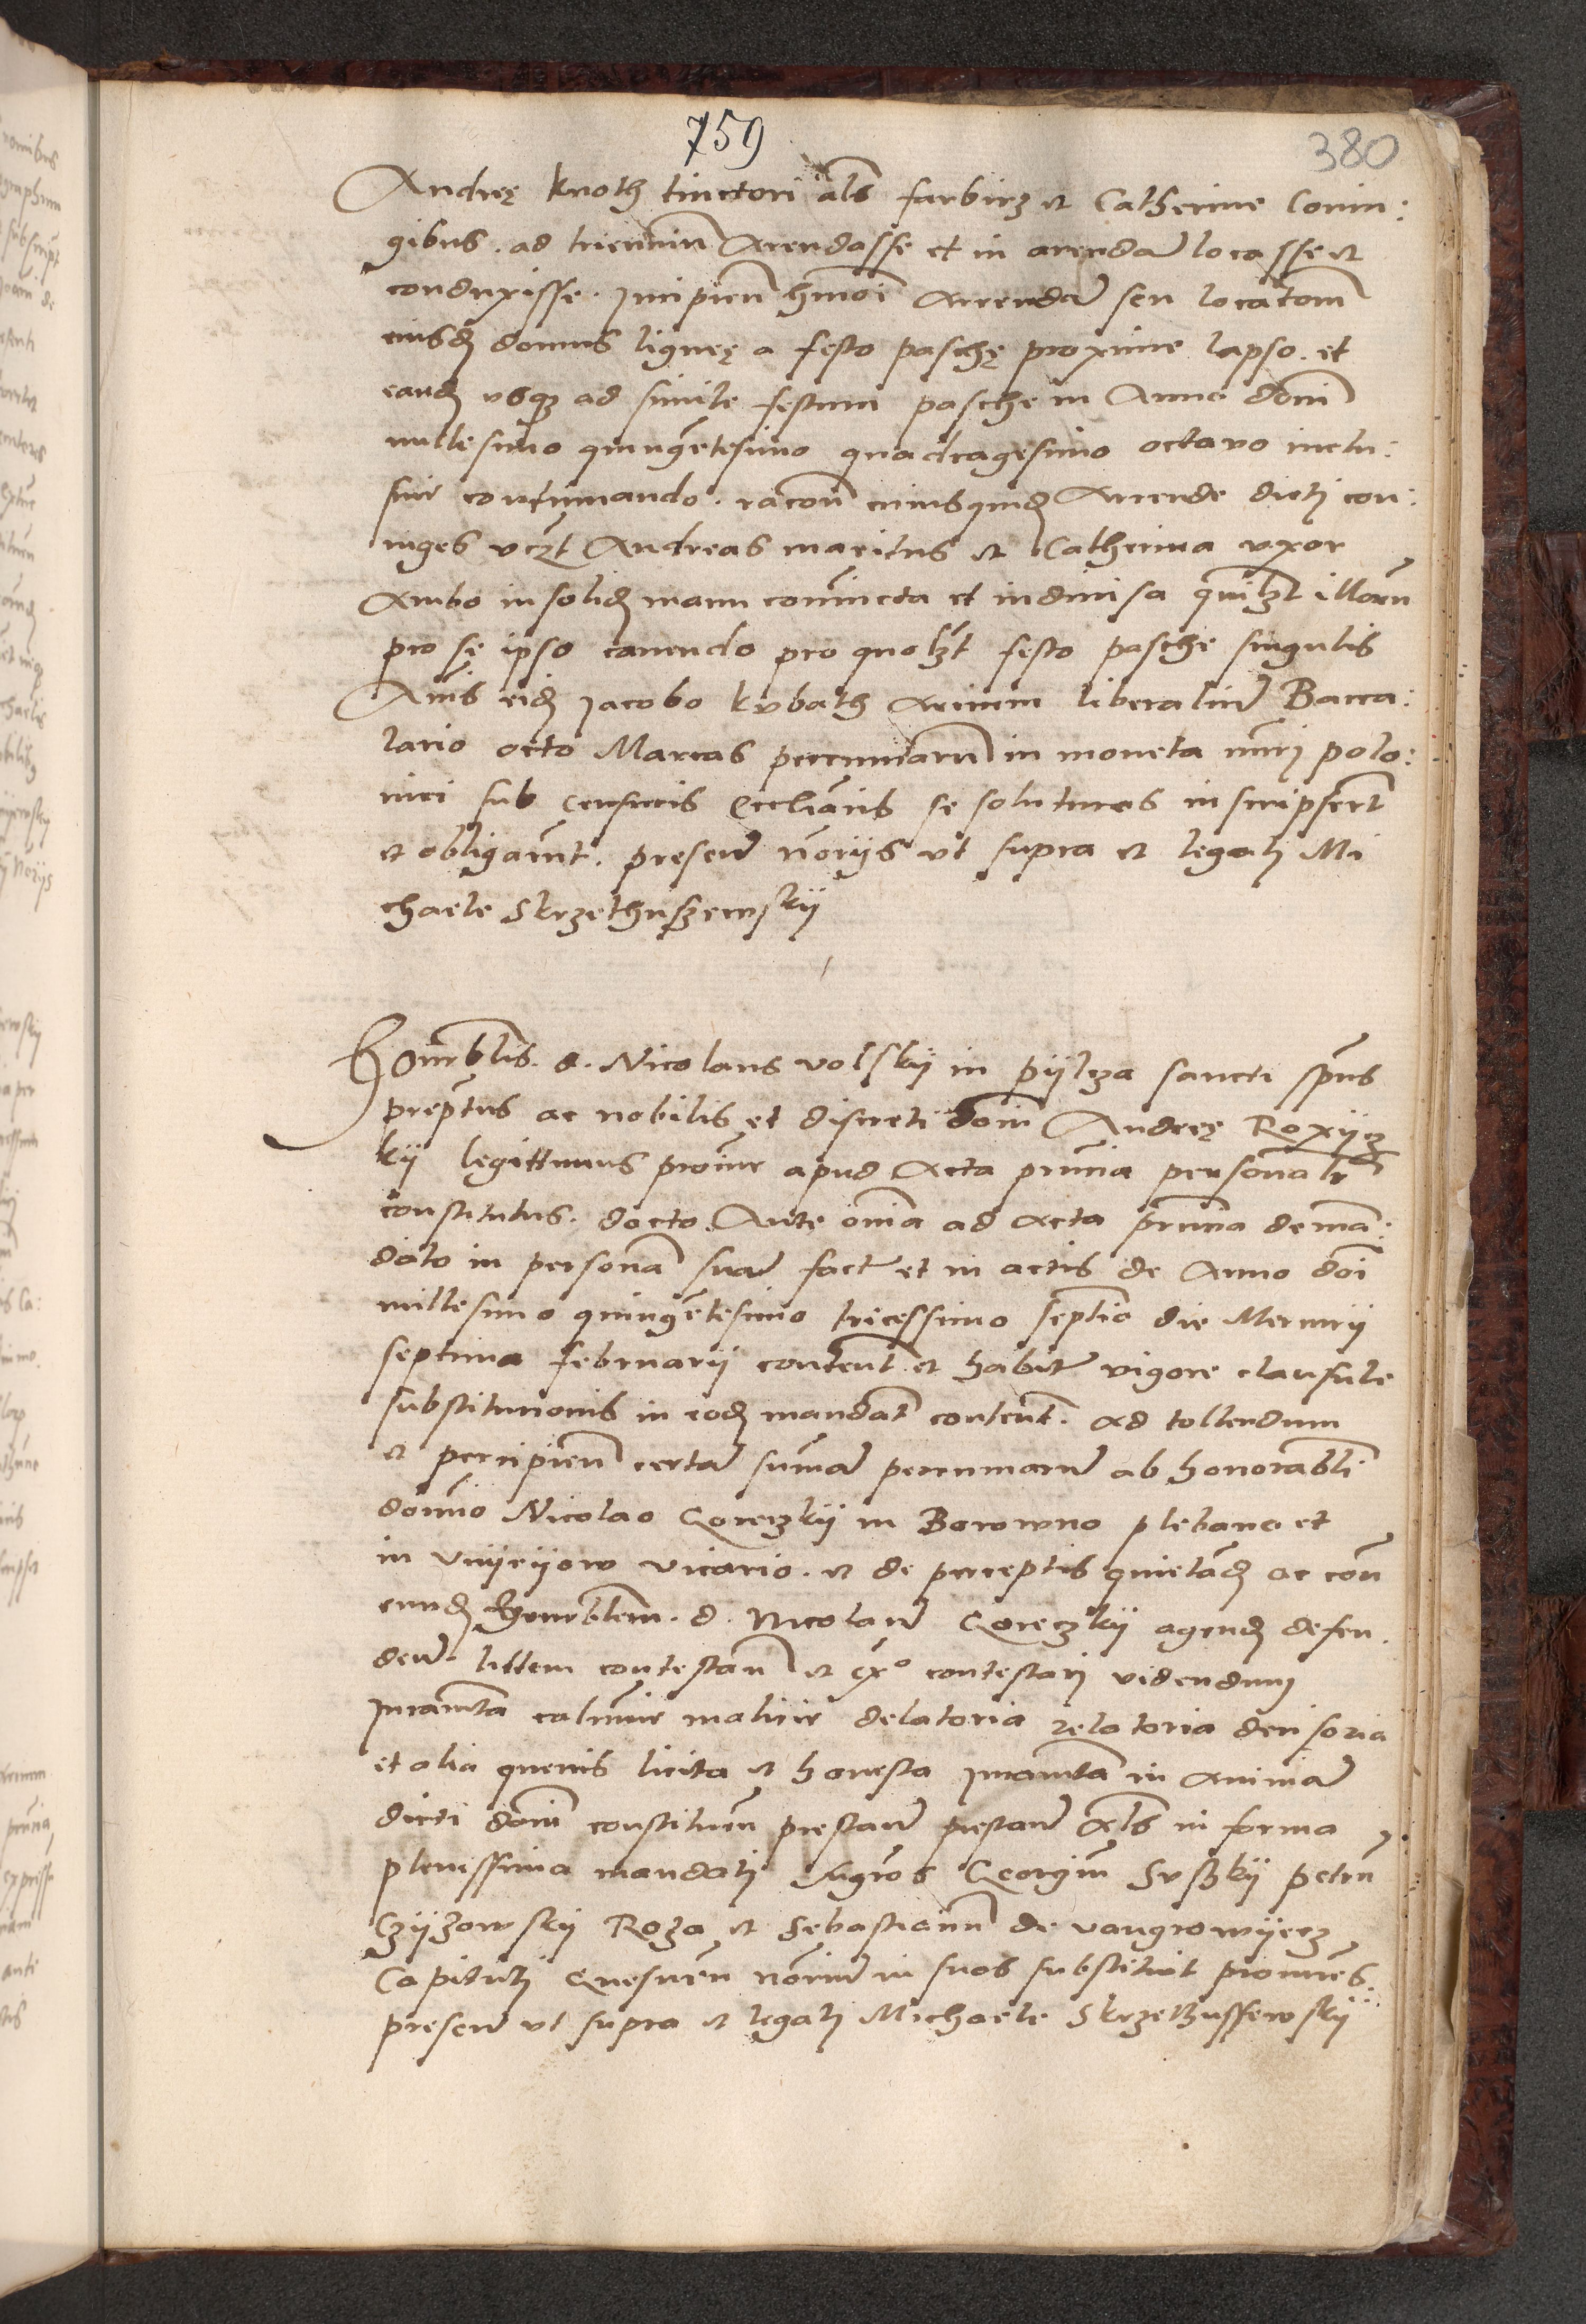 759
380
Andreę knoth tinctori als farbirz et Catherine Coniu:
gibus. ad trienniu Arendasse et in arenda locasse et
conduxisse. Incipien hmoi Arrenda seu locatom
eiusd domus ligneę a festo paschę proxime lapso. et
eand usqz ad simile festum pasche in Anno domi
millesimo quingetesimo quadragesimo octavo inclu:
sive continuando. racon cuiusquid Arrende dicti con:
iuges vczt Andreas maritus et Catherina uxor
Ambo in solid manu coniuncta et indivisa quilzt illoru
pro sę ipso cavendo pro quolzt festo pasche singulis
Anis eid Jacobo kvbath Arcium liberaliu Bacca:
lario octo Marcas peccuniaru in moneta nuri polo:
nici sub censuris ecclianis se soluturos inscripsert
et obligarut. presen noriis ut supra et legali Mi
chaele Skrzethuszewskij
Honorblis. d. Nicolaus volskij in pijlcza sancti spus
preptus ac nobilis et discreti domi Andreę Roxijcz
kij legittimus procur apud Acta pncia personalr
constitutus. docto. Ante omia ad acta pncia de man:
dato in persona sua fact et in actis de Anno doi
millesimo quingetesimo tricessimo septio die Mercurij
septima februarij content et habit vigore clausule
substitucionis in eod mandat content. ad tollendum
et percipien certa suma pecuniaru ab honorabli
domino Nicolao Goreczkij in Borowno plebano et
in Vnijeijow vicario. et de perceptis quietad ac con
eund Honorblem. d. Nicolau Goreczkij agend defen.
den littem contestan et ex° contestari videndum
Iuramta calumie malicie delatoria relatoria derisoria
et alia quevis licita et honesta Iuramta in Anima
dicti domi constituen prestan prestan Als in forma
plenissima mandati Ingros Georgiu Svskij petru
Czijzowskij Roza et Sebastianu de vangrowijecz
Capituli Gnesnen noriu in suos substituit procures.
presen ut supra et legali Michaele Skrzethussewskij